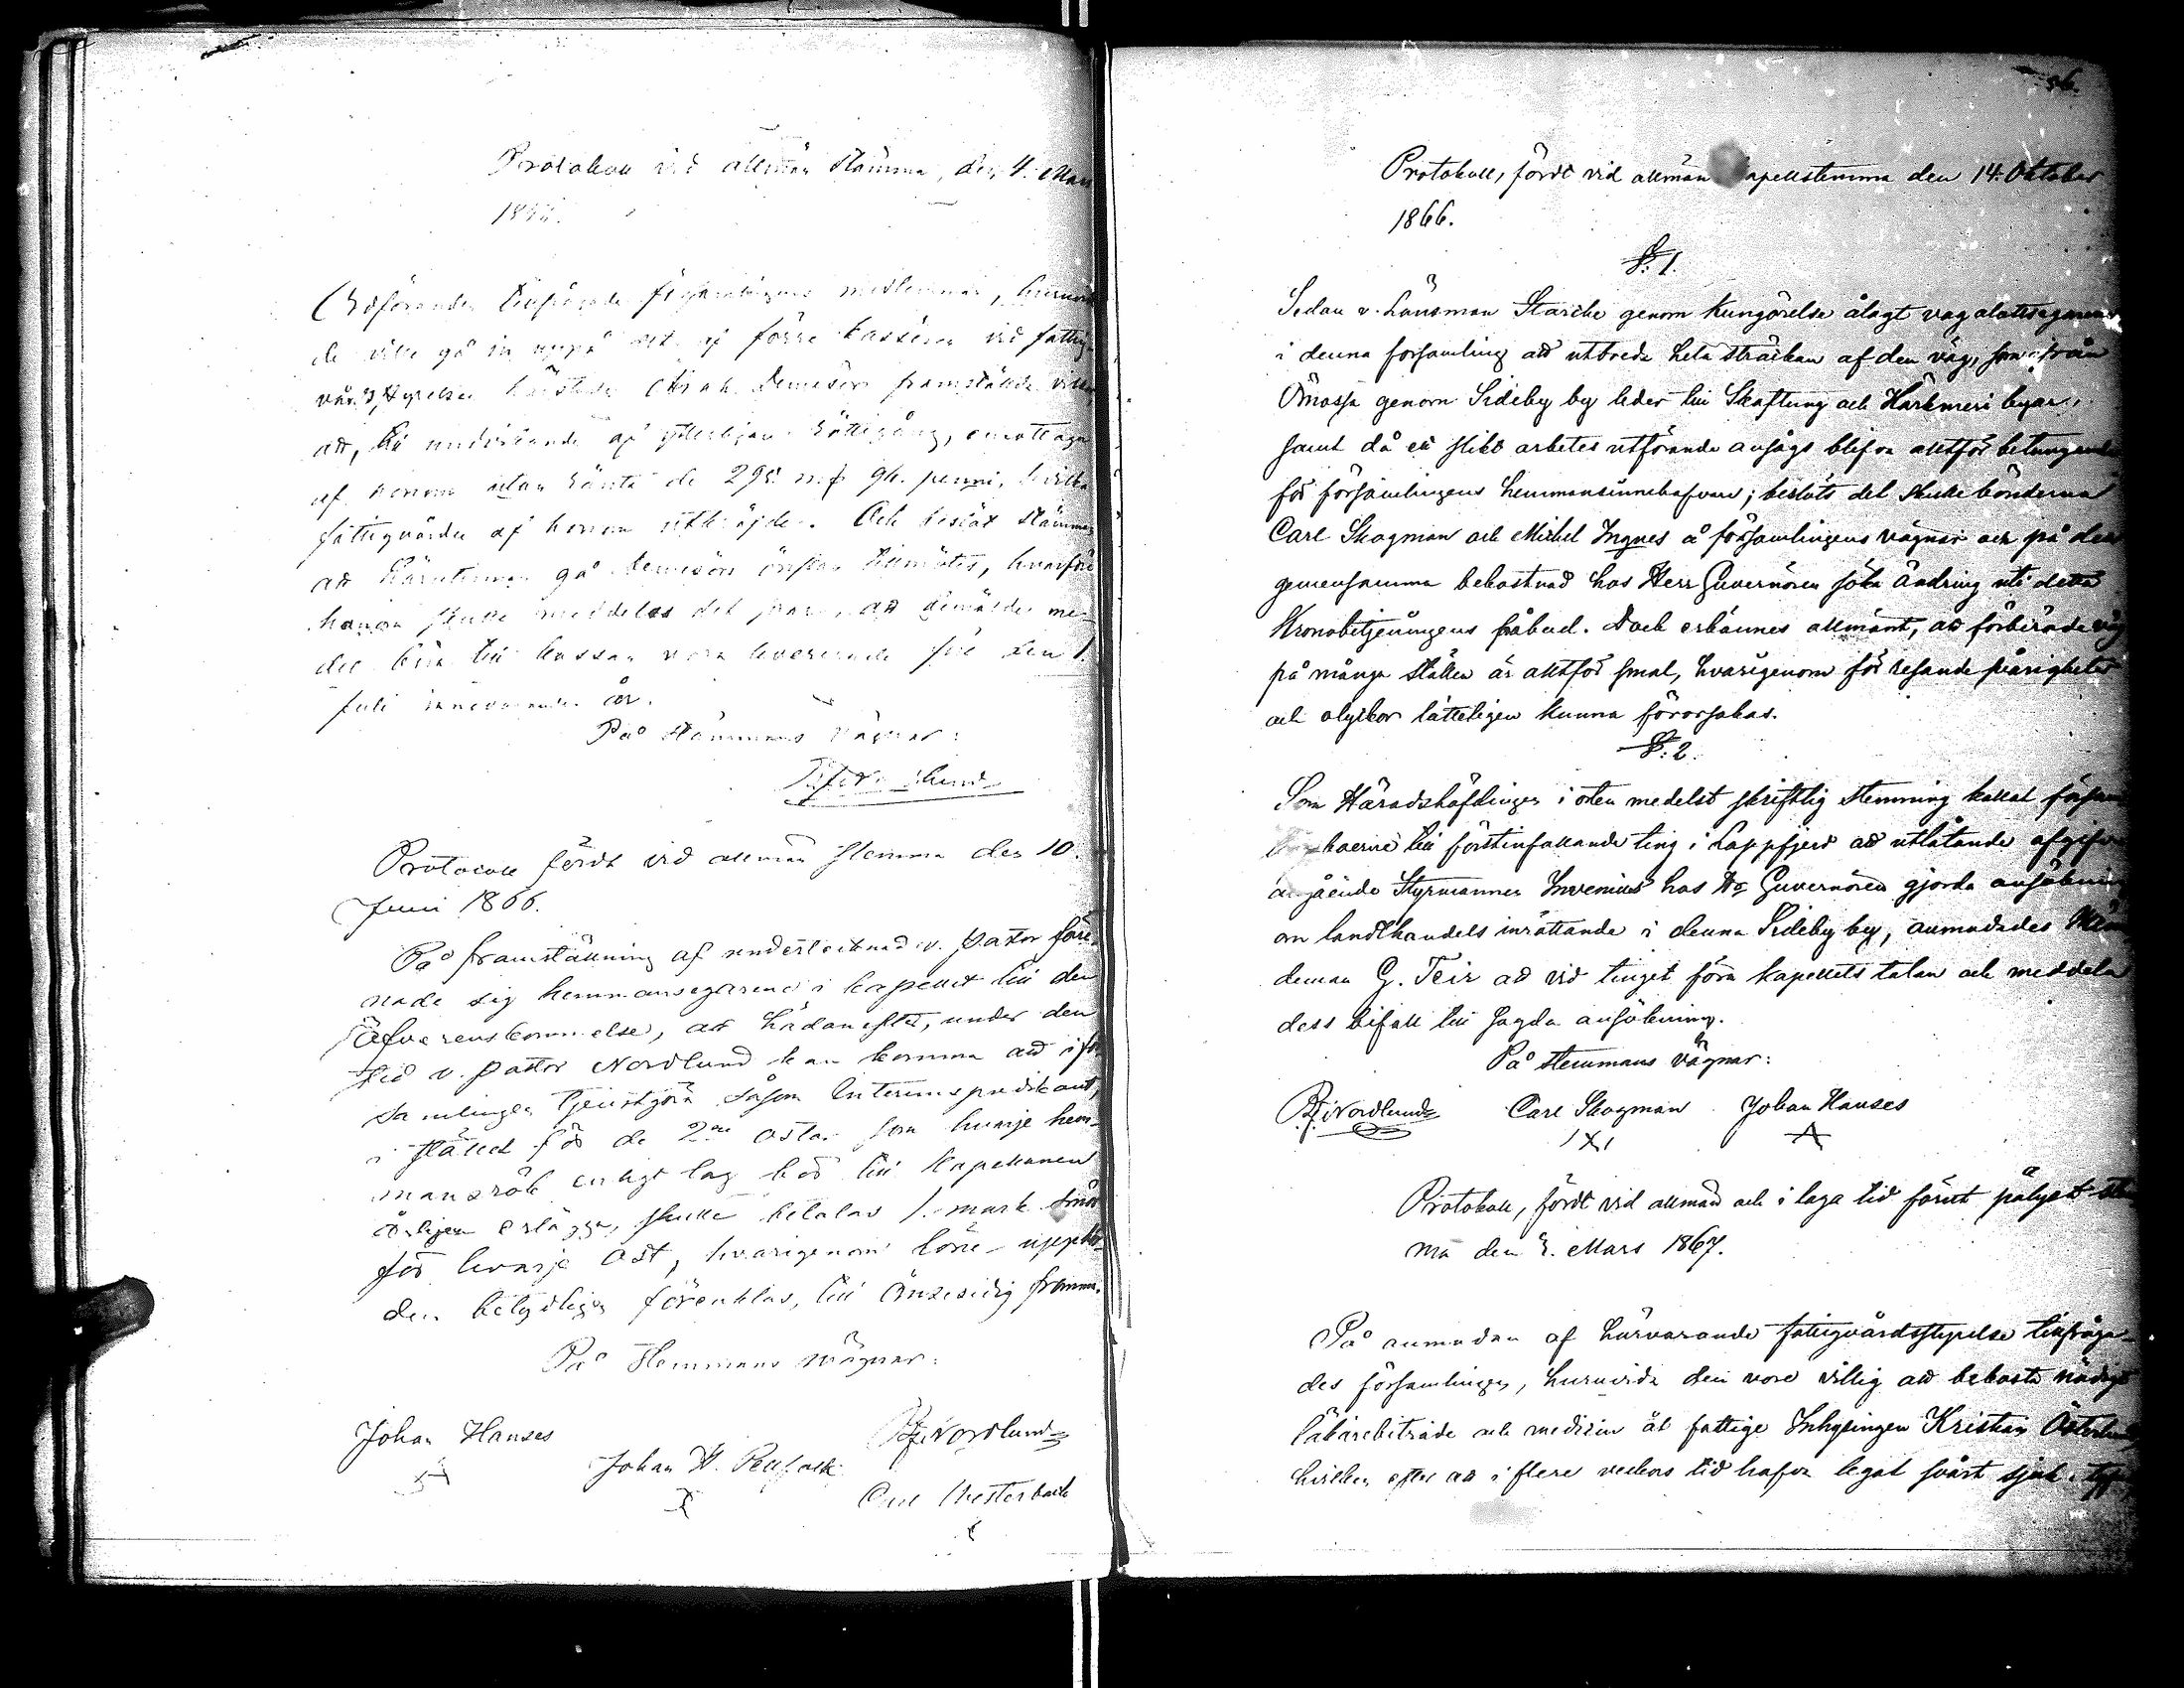 Protokoll vid allmän stämma, den 4. Mars
1866.
Ordföranden tillfrågade församlingens medlemmar, huruvida
de ville gå in uppå det af förre kassören vid fattig-
vårdsstyrelsen Denisson framställde
att, till undvikande af ytterligare rättegång, emottaga
af honom utan ränta de 298 mk 94. penni, hvilka
fattigvården af honom utkräfde. Och beslöt stämman
att härutinnan gå Denissons önskan tillmötes, hvarför
honom skulle meddelas det svar, att
del till kassan vara levererade före den 1.
Juli innevarande år.
På stämmans vägnar:
Nordlund
Protocoll fördt vid allmän stemma den 10.
Juni 1866.
På framställning af undertecknad v. pastor före-
nade sig hemmansegarene i kapellet till den
öfverenskommelse, att hädanefter, under den
tid v. pastor Nordlund kan komma att i för-
samlingen tjenstgöra såsom Interimspredikant,
i stället för de 2ne ostar som hvarje hem-
mansrök enligt lag bör till kapellanen
årligen erlägga, skulle betalas 1. mark smör
för hvarje ost, hvarigenom löne-uppbör-
den betydligen förenklas, till ömsesidig fromma.
På stemmans vägnar:
Johan Hanses
Nordlund
Johan H.
Carl Westerback
36.
Protokoll, fördt vid allmän kapellstemma den 14. Oktober
1866.
§. 1.
Sedan v. Länsman Starcke genom kungörelse ålagt
i denna församling att utbreda hela sträckan af den väg, som från
Ömossa genom Sideby by leder till Skaftung och Härkmeri byar,
samt då ett slikt arbetes utförande ansågs blifva alltför betungande
för församlingens hemmansinnehafvare; beslöts det skulle bönderna
Carl Skogman och Michel Ingves å församlingens vägnar och på dess
gemensamma bekostnad hos Herr Guvernören söka ändring uti detta
Kronobetjeningens påbud. Dock erkännes allmänt, att förberörde väg
på många ställen är alltför smal, hvarigenom för resande svårigheter
och olyckor lätteligen kunna förorsakas.
§. 2.
Som Häradshöfdingen i orten medelst skriftlig stemming kallat försam-
lingsboerne till förstinfallande ting i Lappfjerd att utlåtande afgifva
angående Styrmannen Invenius' hos Hr Guvernören gjorda ansökning
om landthandels inrättande i denna Sideby by, anmodades Näm-
deman G. Teir att vid tinget föra kapellets talan och meddela
dess bifall till sagda ansökning.
På stemmans vägnar:
Nordlund Carl Skogman Johan Hanses
Protokoll, fördt vid allmän och i laga tid förut pålyst stem-
ma den 3. Mars 1867.
På anmodan af härvarande fattigvårdsstyrelse tillfråga-
des församlingen, huruvida den vore villig att bekosta nödigt
läkarebiträde och medicin åt fattige Inhysingen Kristian Österlund,
hvilken efter att i flere veckors tid hafva legat svårt sjuk i